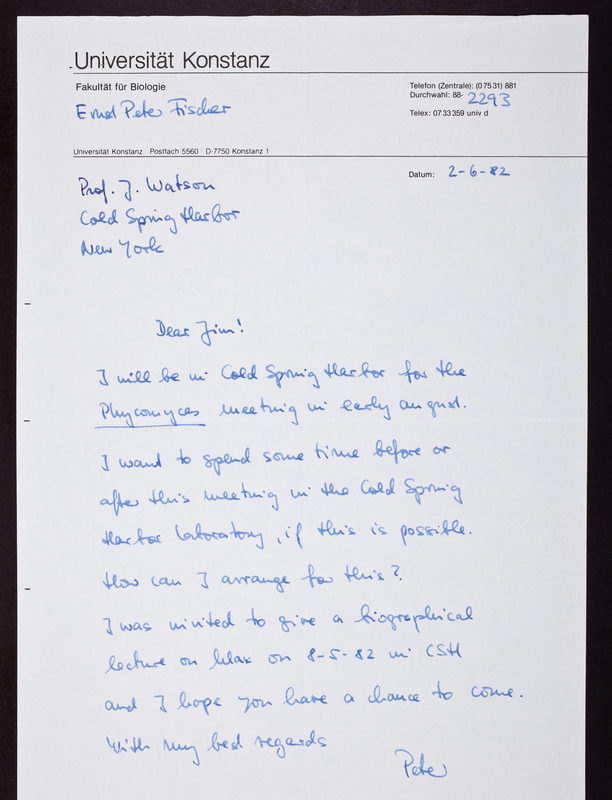 Universität Konstanz
Fakultät für Biologie
Ernst Peter Fischer
Telefon (Zentrale): (0 75 31) 881
Durchwahl: 88- 2293
Telex: 07 33 359 univ d
Universität Konstanz · Postfach 5560 · D-7750 Konstanz 1
Datum: 2-6-82
Prof. J. Watson
Cold Spring Harbor
New York
Dear Jim!
I will be in Cold Spring Harbor for the
Phycomyces meeting in early august.
I want to spend some time before or
after this meeting in the Cold Spring
Harbor Laboratory, if this is possible.
How can I arrange for this?
I was invited to give a biographical
lecture on Max on 8-5-82 in CSH
and I hope you have a chance to come.
With my best regards
Peter